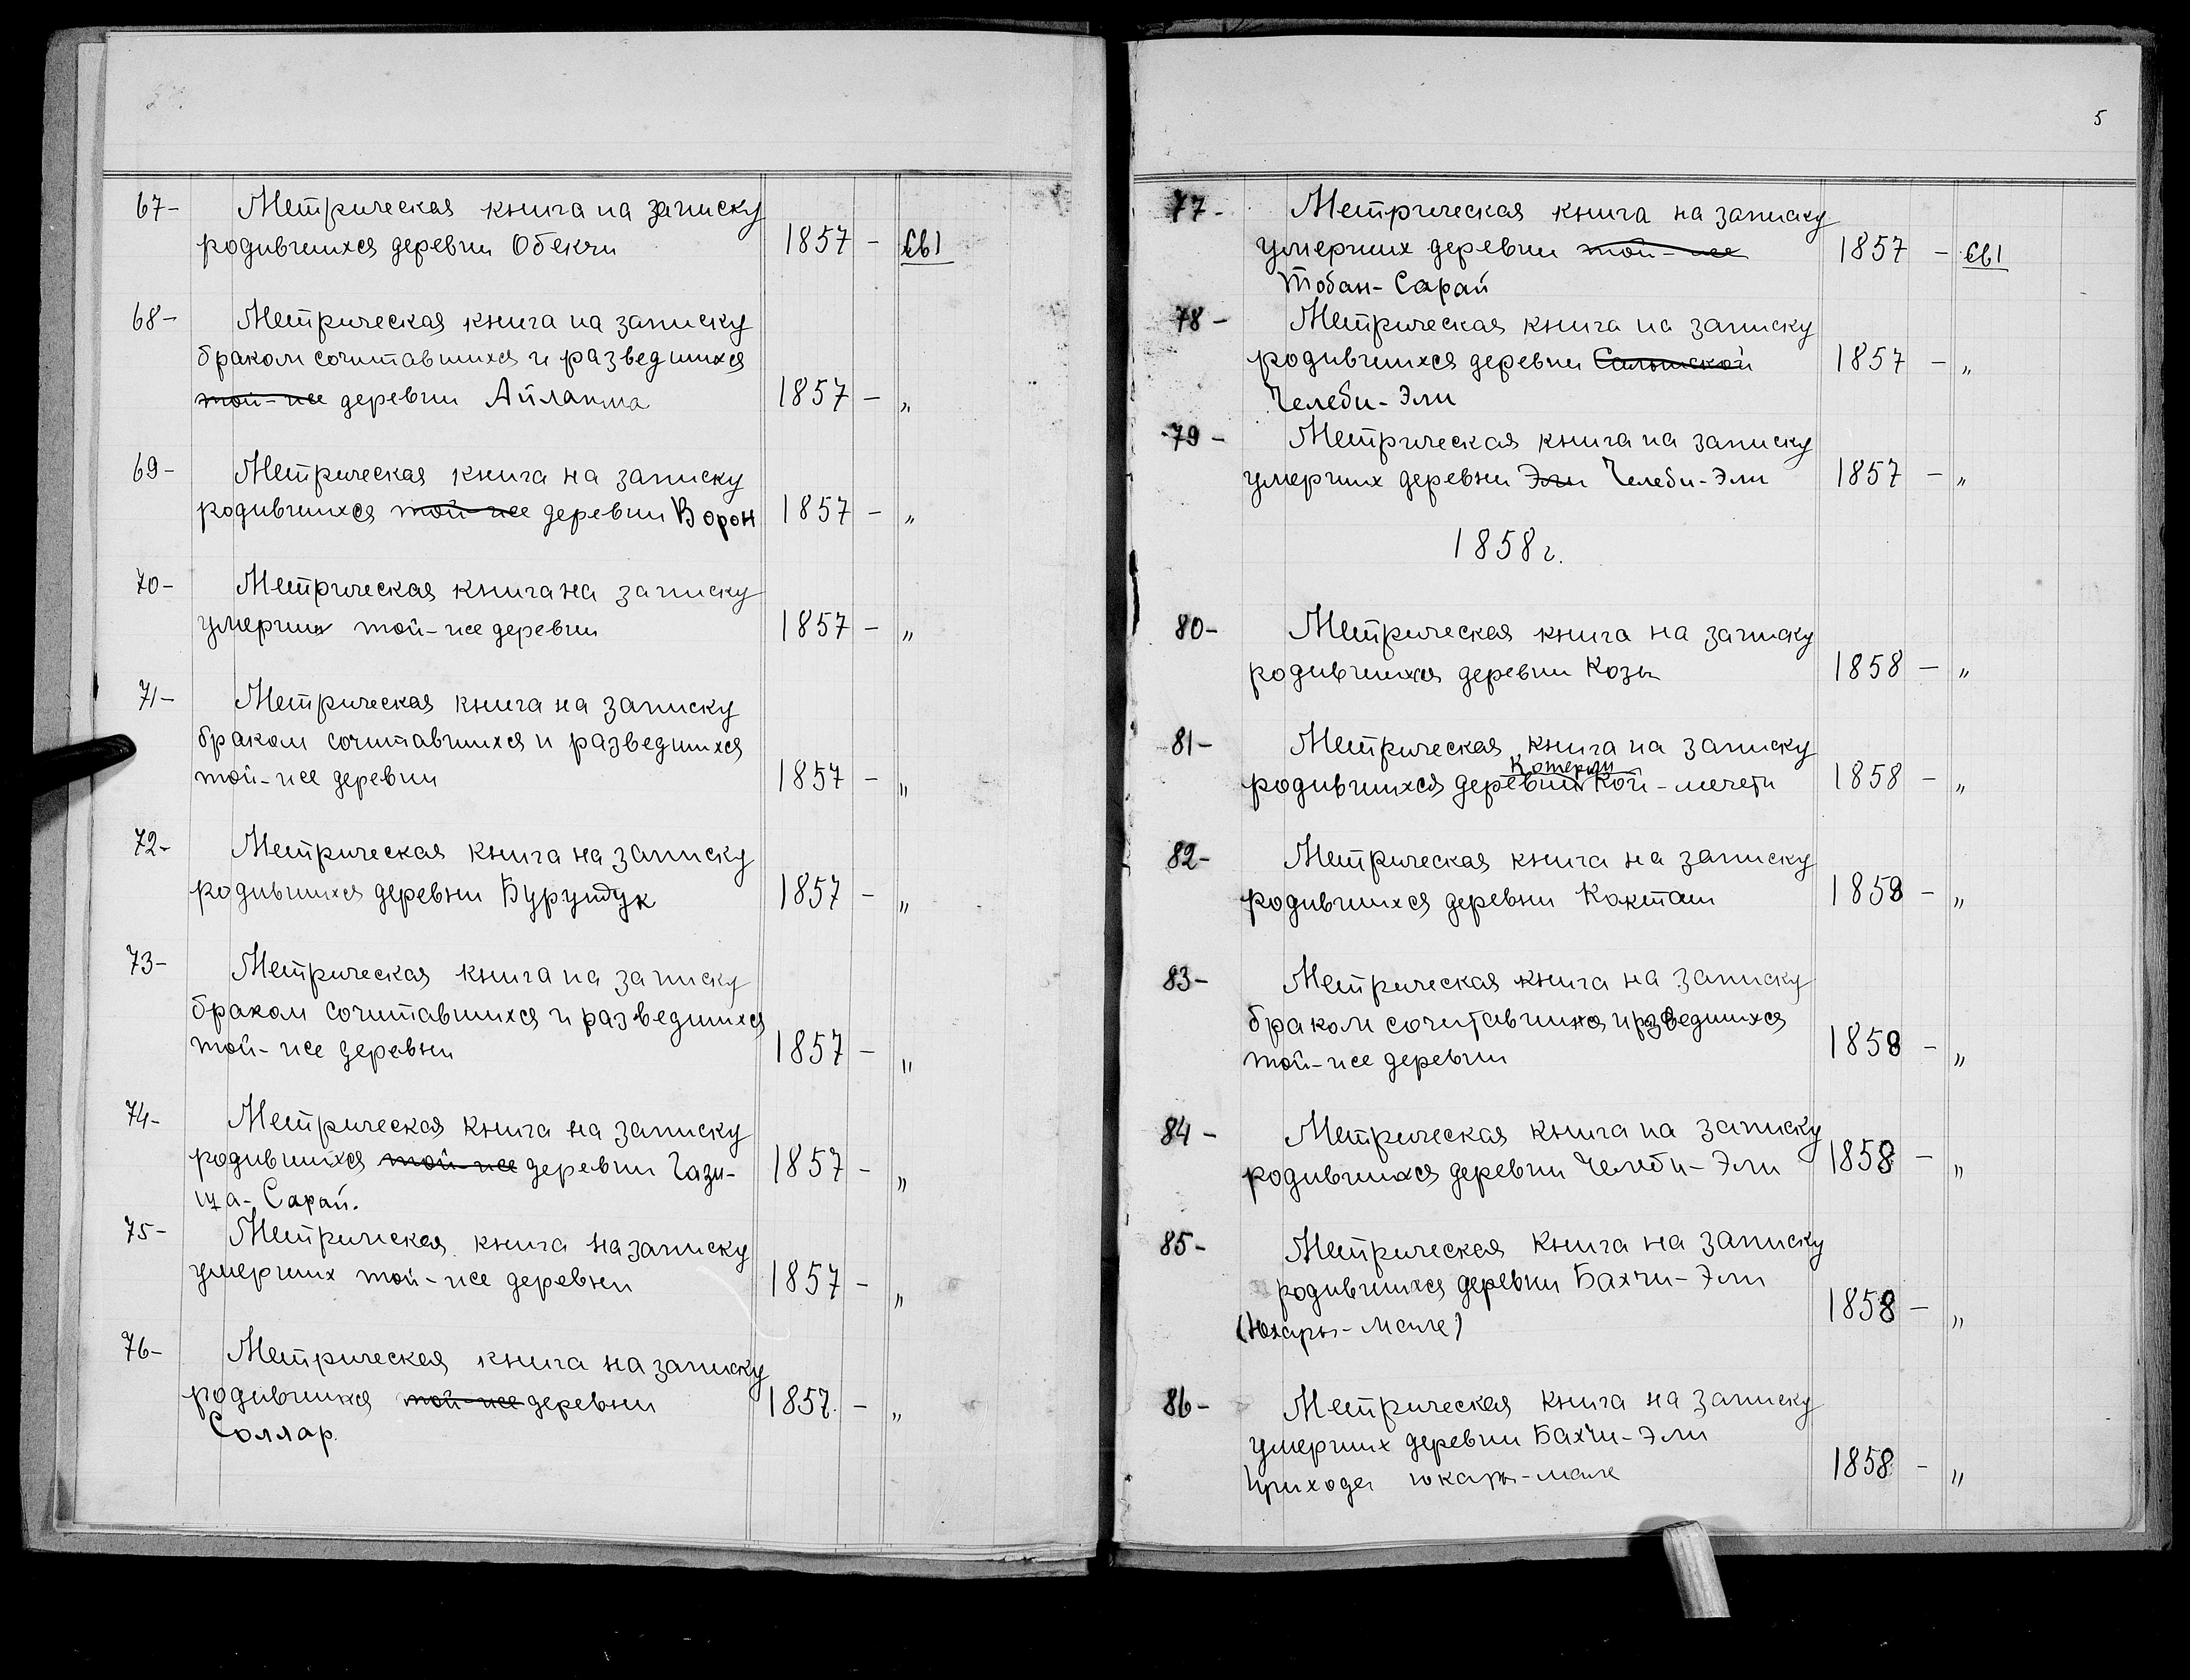 67- Метрическая книга на записку
родившихся деревни Обекчи 1857 -
68- Метрическая книга на записку
браком сочитавшихся и разведшихся
той-же деревни Айланма 1857 - „
69- Метрическая книга на записку
родившихся той-же деревни Ворон 1857 - „
70- Метрическая книга на записку
умерших той-же деревни 1857 - „
71- Метрическая книга на записку
браком сочитавшихся и разведшихся
той-же деревни 1857 - „
72- Метрическая книга на записку
родившихся деревни Бурундук 1857 - „
73- Метрическая книга на записку
браком сочитавшихся и разведшихся
той-же деревни 1857 - „
74- Метрическая книга на записку
родившихся той-же деревни Гази- 1857 - „
ца-Сарай.
75- Метрическая книга на записку
умерших той-же деревни 1857 - „
76- Метрическая книга на записку
родившихся той-же деревни 1857 - „
Соллар.
5
77- Метрическая книга на записку
умерших деревни той-же 1857 -
Тобан-Сарай
78- Метрическая книга на записку
родившихся деревни 1857 - „
Челеби-Эли
79- Метрическая книга на записку
умерших деревни Эли Челеби-Эли 1857 - „
1858 г.
80- Метрическая книга на записку
родившихся деревни Козы 1858 - „
81- Метрическая книга на записку
родившихся деревни Кой-мечети 1858 - „
82- Метрическая книга на записку
родившихся деревни Кокташ 1858 - „
83- Метрическая книга на записку
браком сочитавшихся и разведшихся
той-же деревни 1858 - „
84- Метрическая книга на записку
родившихся деревни Челеби-Эли 1858 - „
85- Метрическая книга на записку
родившихся деревни Бахчи-Эли
(Юхары-Мале) 1858 - „
86- Метрическая книга на записку
умерших деревни Бахчи-Эли
прихода юкары-мале 1858 - „